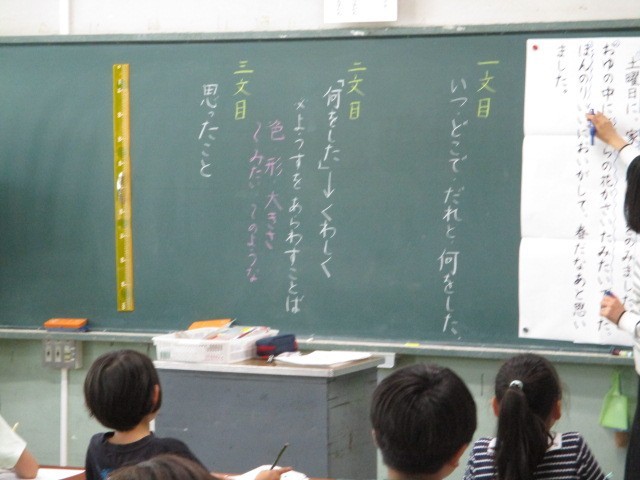 土曜日に、家
のみまし
おゆの中に らの花がさいたみたい た
ぽんのりい においがして、春だなあと思い
ました。
一文目
いつ・どこで・だれと・何をした。
二文目
「何をした」→くわしく
×ようすをあらわすことば
色 形 大きさ
～みたい ～のような
三文目
思ったこと